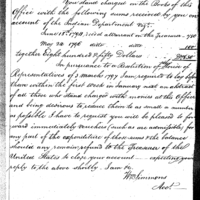 You stand charged in the Books of this
Office with the following sums received by you on
account of the Indian Department viz.
June 18th 1794, receivd a Warrant on the Treasurer 750
Nov 24 1796 ditto ditto 100
Together Eight hundred & fifty Dollars $850
In pursuance to a Resolution of the House of
Representatives of 3 March 1797 I am required to lay before
them within the first week in January next an abstract
of all those who stand charged with monies at this Office
and being desirous to reduce them to as small a number
as possible I have to request you will be pleased to for
ward immediately vouchers (such as are admissible) for
any part of the expenditure of these sums & the balance
should any remain, refund to the Treasurer of the
United States to close your account — expecting your
reply to the above shortly I am &c
Wm Simmons
Acct